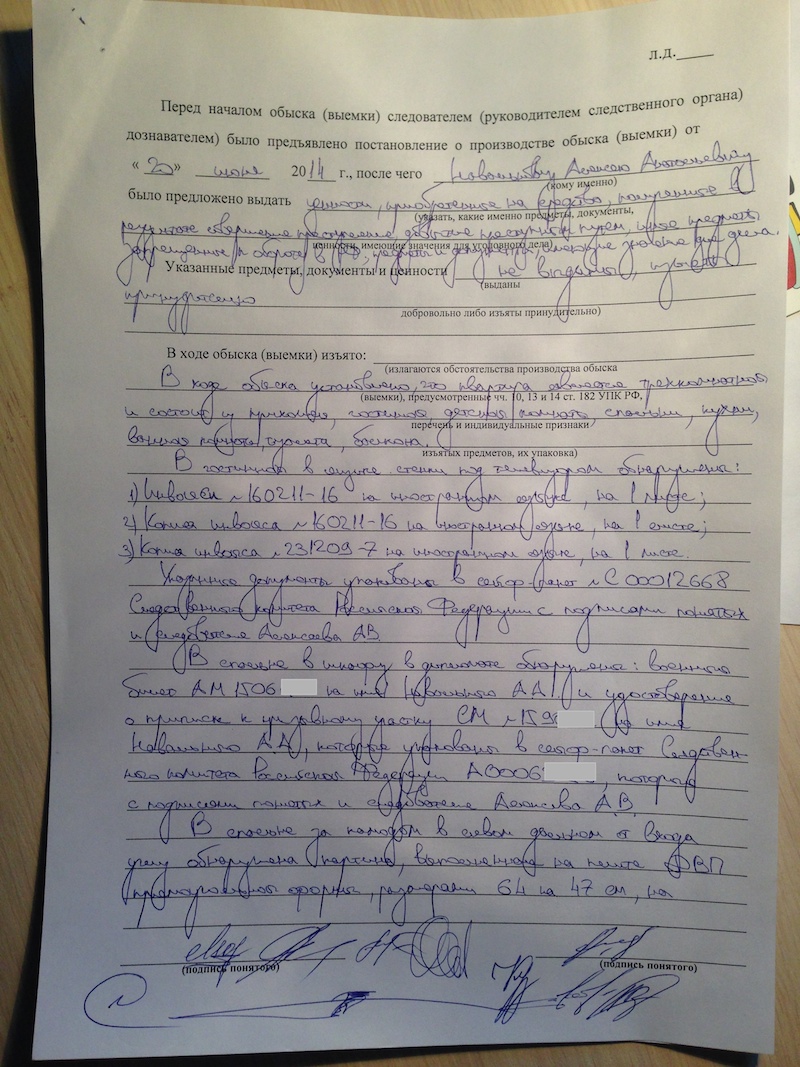 Л.Д.
Перед началом обыска (выемки) следователем (руководителем следственного органа)
дознавателем) было предъявлено постановление о производстве обыска (выемки) от
« 20 » июня 2014 г., после чего Навальному Алексею Анатольевичу
(кому именно)
было предложено выдать ценности, приобретенные на средства, полученные в
(указать, какие именно предметы, документы,
результате совершения преступления, добытые преступным путем, иные предметы
ценности, имеющие значения для уголовного дела)
запрещенные к обороте в РФ, предметы и документы, имеющие значение для дела.
Указанные предметы, документы и ценности не выданы, изъяты
(выданы
принудительно
добровольно либо изъяты принудительно)
В ходе обыска (выемки) изъято:
(излагаются обстоятельства производства обыска
В ходе обыска установлено, что квартира является трехкомнатной
(выемки), предусмотренные чч. 10, 13 и 14 ст. 182 УПК РФ,
и состоит из прихожей, гостиной, детской комнаты, спальни, кухни,
перечень и индивидуальные признаки
ванной комнаты, туалета, балкона.
изъятых предметов, их упаковка)
В гостинной в ящике стенки под телевизором обнаружены:
1) Инвойс №160211-16 на иностранном языке, на 1 листе;
2) Копия инвойса №160211-16 на иностранном языке, на 1 листе;
3) Копия инвойса №231209-7 на иностранном языке, на 1 листе.
Указанные документы упакованы в сейф-пакет №С00012668
Следственного комитета Российской Федерации с подписами понятых
и следователя Алексеева А.В.
В спальне в шкафу в дипломате обнаружены: военный
билет АМ 1506 на имя Навального А.А. и удостоверение
о приписке к призывному участку СМ №159 на имя
Навального А.А., которые упакованы в сейф-пакет Следствен-
ного комитета Российской Федерации А0006 , который
с подписями понятых и следователя Алексеева А.В.
В спальне за комодом в левом дальнем от входа
углу обнаружена картина, выполненная на плите ДВП
прямоугольной формы, размерами 64 на 47 см, на
(подпись понятого) (подпись понятого)